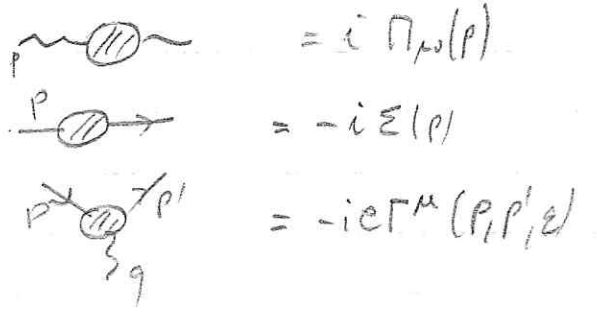 p = i Π_{μν}(p)
p = -i Σ(p)
p p' q = -ieΓ^μ(p,p',ε)